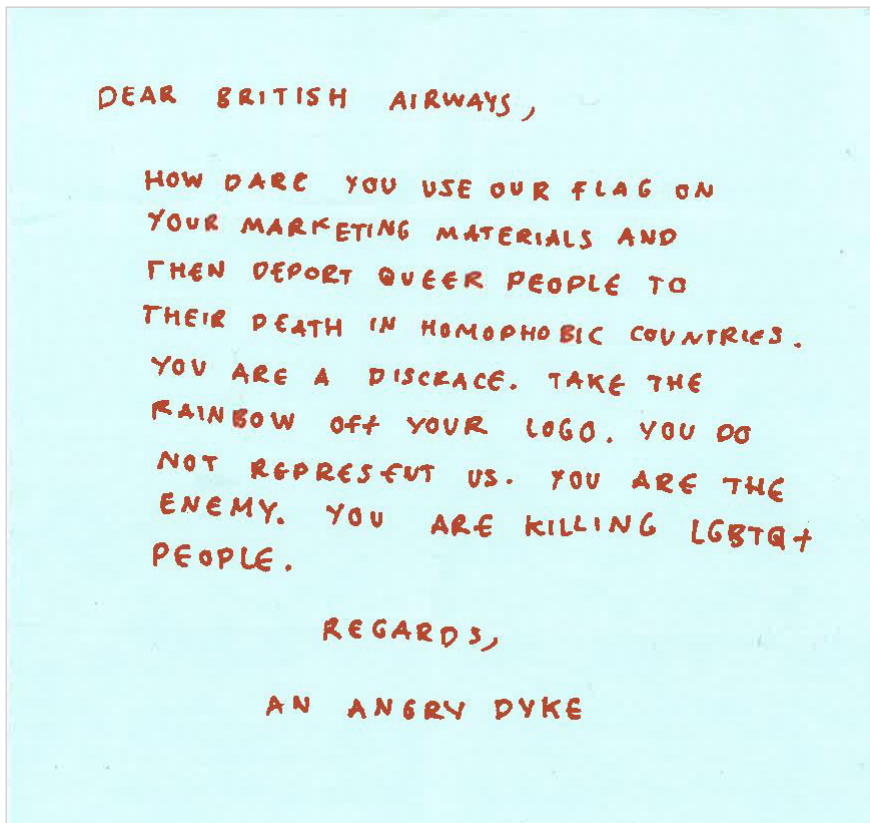 DEAR BRITISH AIRWAYS,
HOW DARE YOU USE OUR FLAG ON
YOUR MARKETING MATERIALS AND
THEN DEPORT QUEER PEOPLE TO
THEIR DEATH IN HOMOPHOBIC COUNTRIES.
YOU ARE A DISGRACE. TAKE THE
RAINBOW OFF YOUR LOGO. YOU DO
NOT REPRESENT US. YOU ARE THE
ENEMY. YOU ARE KILLING LGBTQ+
PEOPLE.
REGARDS,
AN ANGRY DYKE